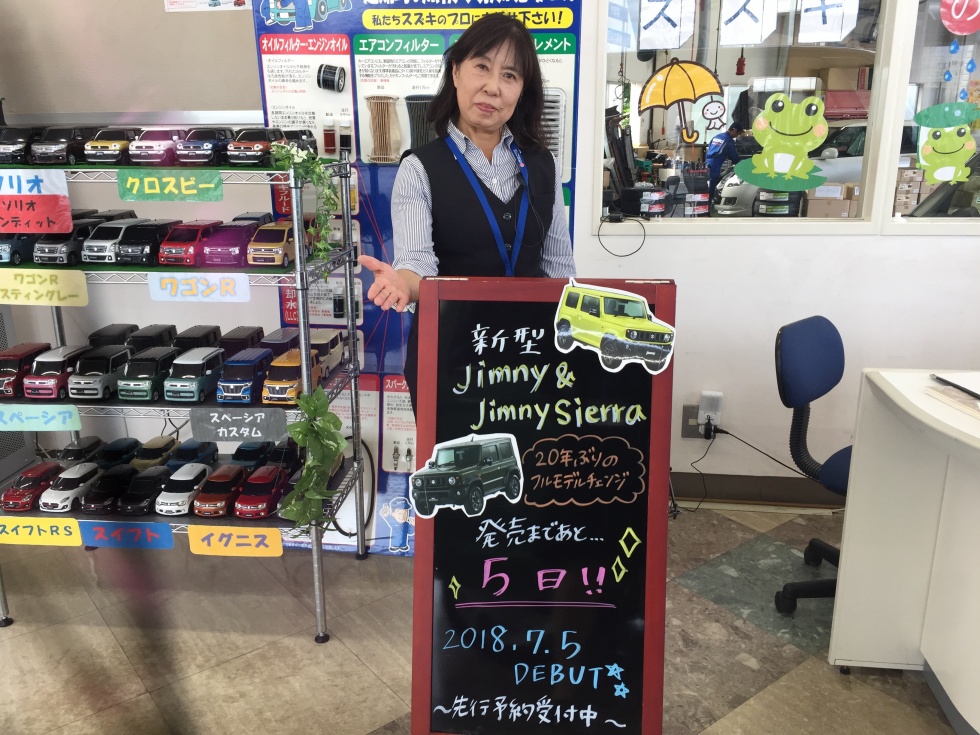 私たちスズキのプロにお任せ下さい!
オイルフィルター・エンジンオイル
エアコンフィルター
レメント
スズキ
の
ソリオ
ソリオ
バンディット
クロスビー
ワゴンR
スティングレー
ワゴンR
スペーシア
スペーシア
カスタム
スイフトRS
スイフト
イグニス
新型
Jimny &
Jimny Sierra
20年ぶりの
フルモデルチェンジ
発売まであと...
5日!!
2018.7.5
DEBUT
～先行予約受付中～